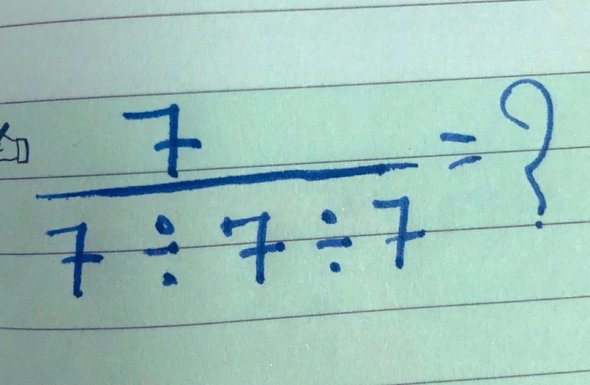 7
7 ÷ 7 ÷ 7 = ?